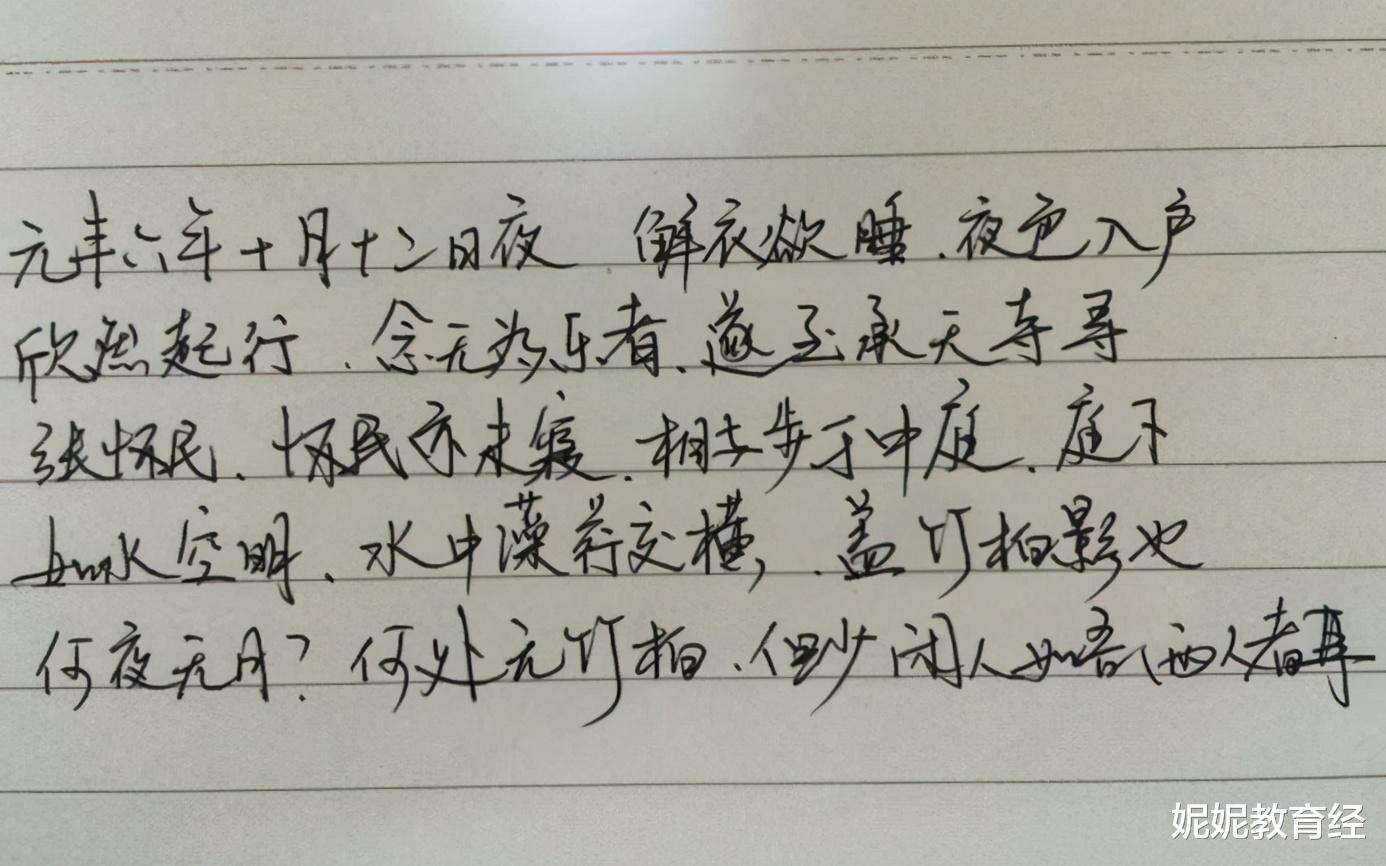 元丰六年十月十二日夜 解衣欲睡.夜色入户
欣然起行.念无为乐者.遂至承天寺寻
张怀民.怀民亦未寝.相与步于中庭.庭下
如水空明.水中藻荇交横,.盖竹柏影也
何夜无月?何处无竹柏.但少闲人如吾两人者耳
妮妮教育经